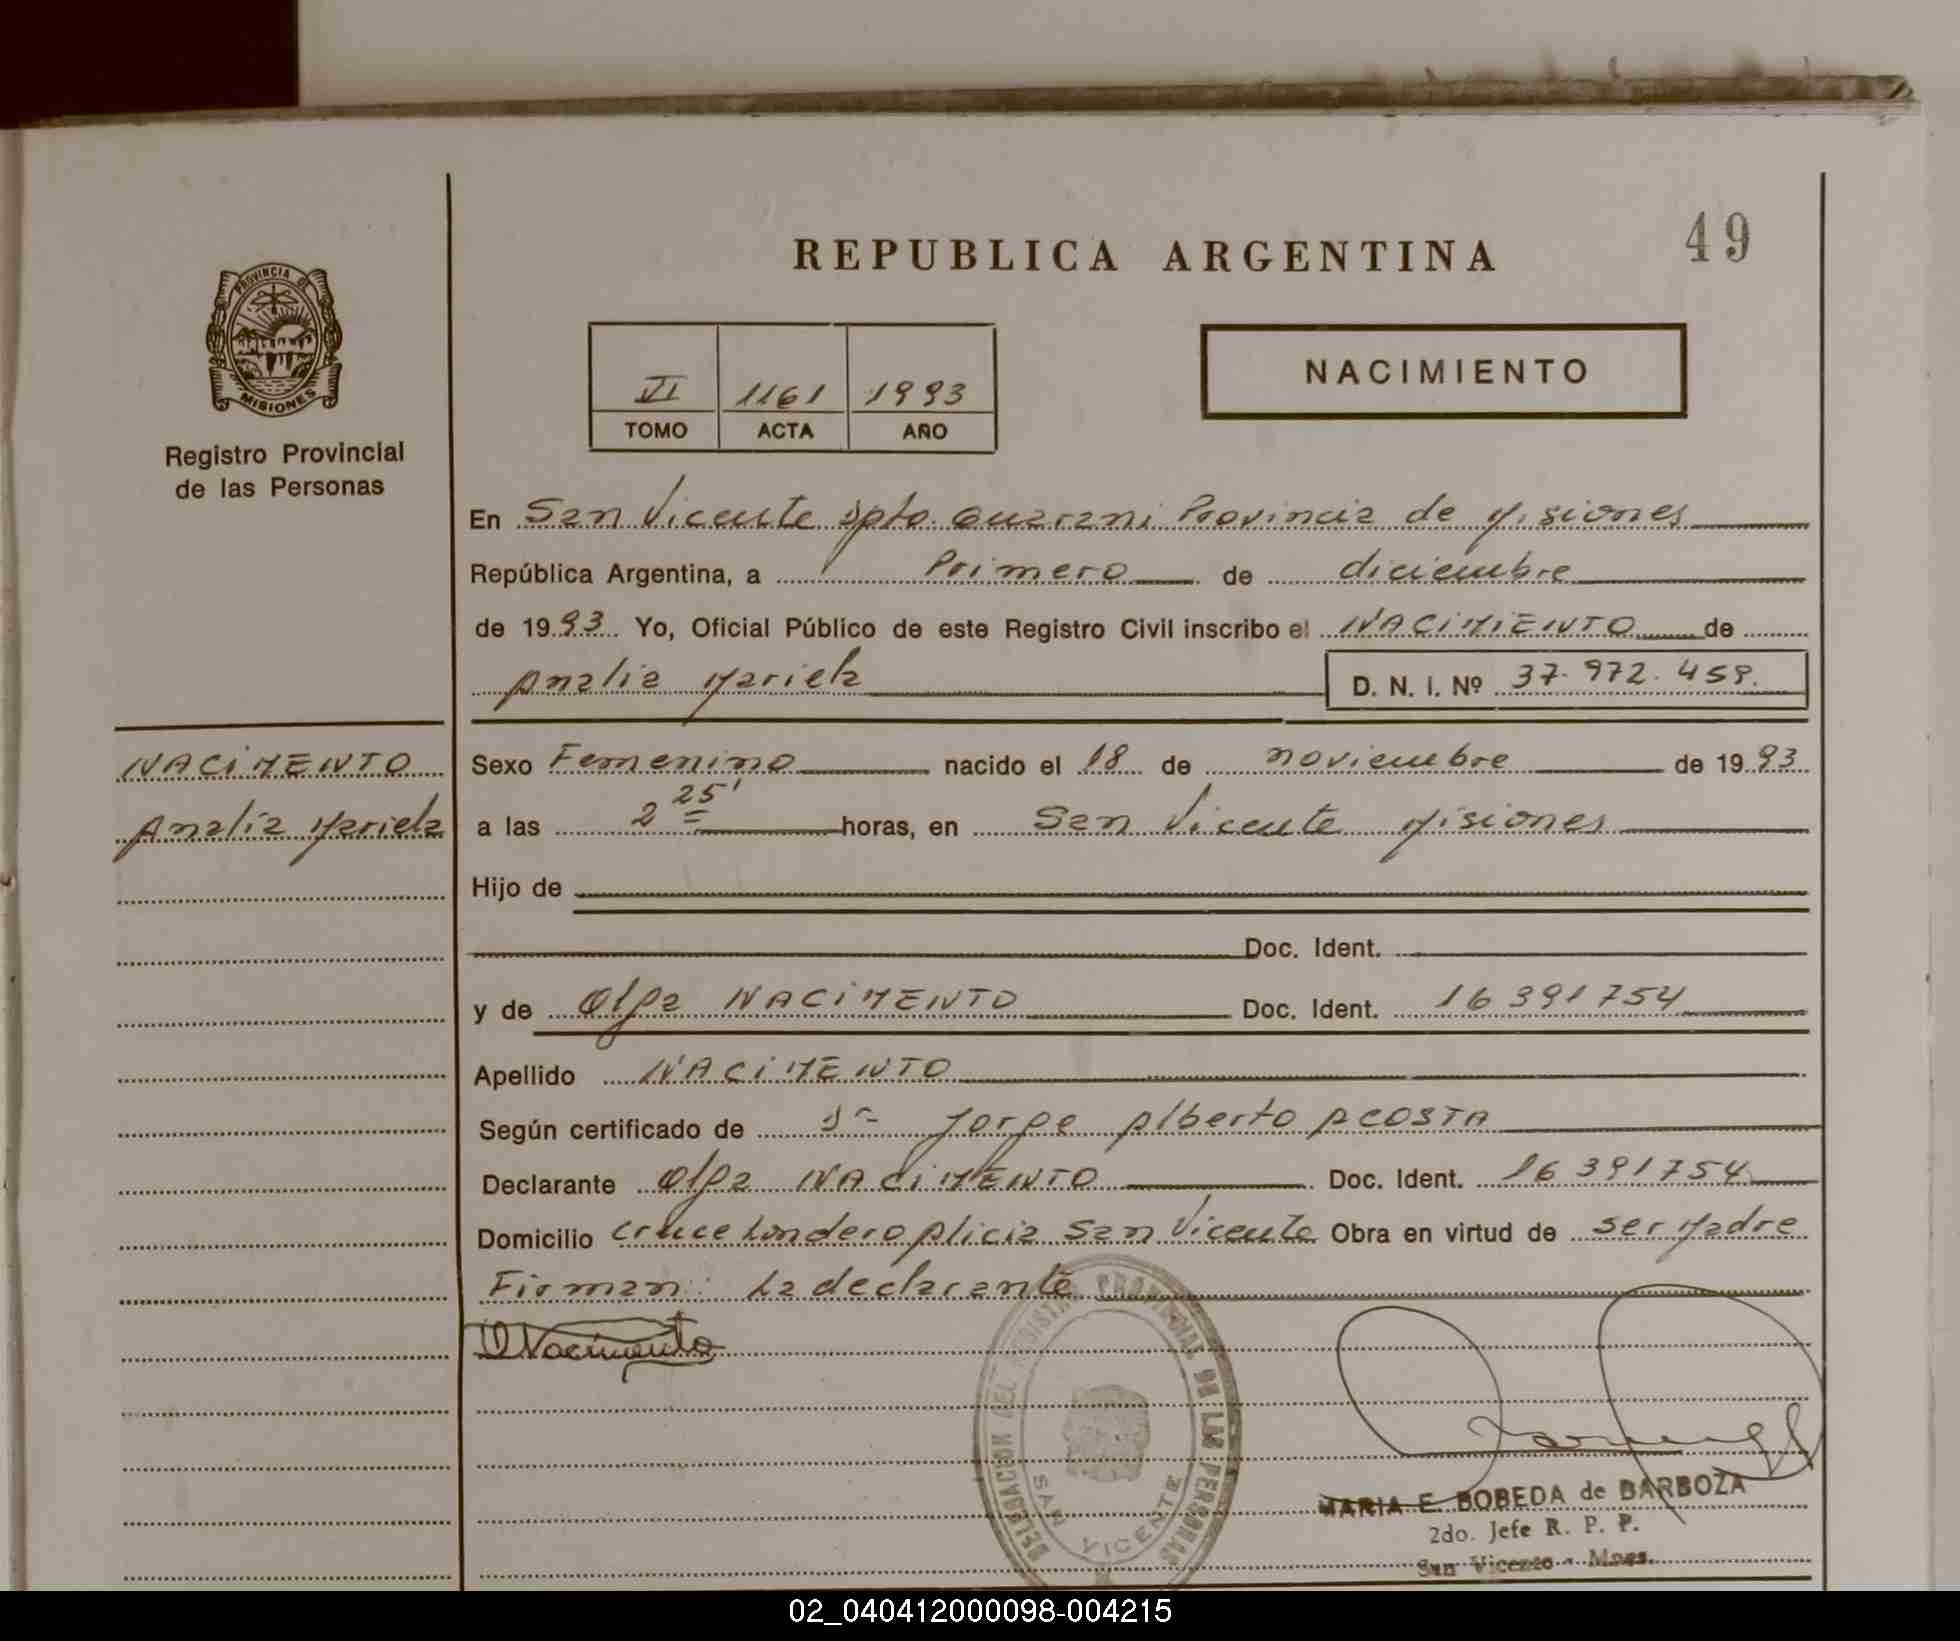 REPUBLICA ARGENTINA
49
PROVINCIA DE
MISIONES
Registro Provincial
de las Personas
VI 1161 1993
TOMO ACTA AÑO
NACIMIENTO
En San Vicente Dpto. Guarani Provincia de Misiones
República Argentina, a Primero de diciembre
de 1993 Yo, Oficial Público de este Registro Civil inscribo el NACIMIENTO de
Analia Mariela D. N. I. Nº 37.972.459.
NACIMENTO
Analia Mariela
Sexo Femenino nacido el 18 de noviembre de 1993
a las 2 25' horas, en San Vicente Misiones
Hijo de
Doc. Ident.
y de Olga NACIMENTO Doc. Ident. 16391754
Apellido NACIMENTO
Según certificado de Dr Jorge Alberto ACOSTA
Declarante Olga NACIMENTO Doc. Ident. 16391754
Domicilio Cruce Londero Alicia San Vicente Obra en virtud de ser Madre
Firman: La declarante
O Nacimento
DELEGACION DEL REGISTRO PROVINCIAL DE LAS PERSONAS
SAN VICENTE
MARIA E. BOBEDA de BARBOZA
2do. Jefe R. P. P.
San Vicente - Mnes.
02_040412000098-004215